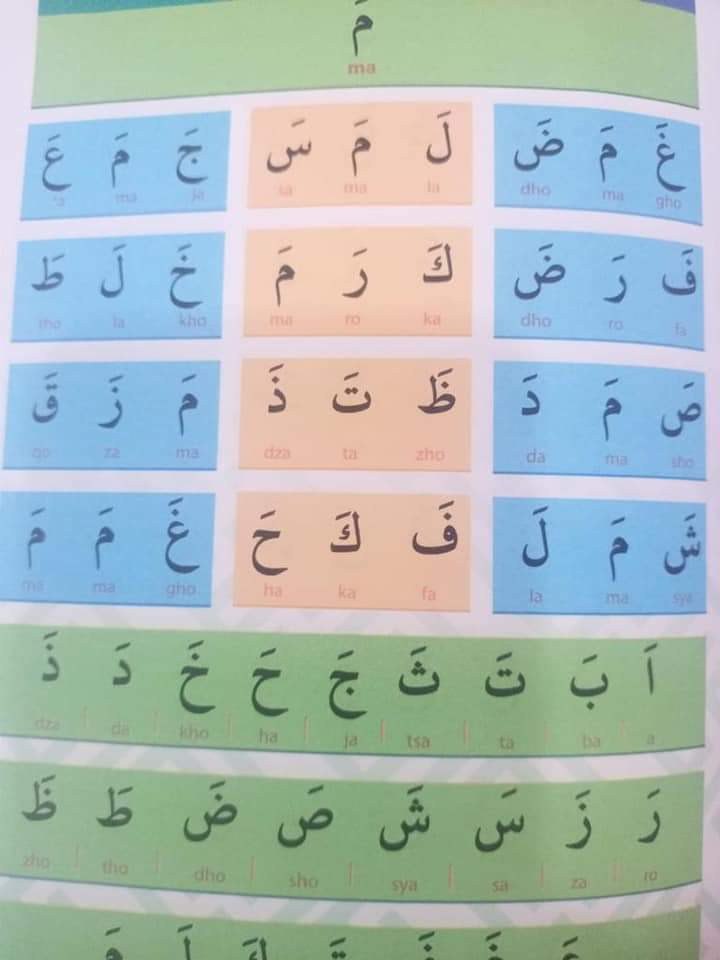 مَ
ma
غَ مَ ضَ لَ مَ سَ جَ مَ عَ
gho ma dho la ma sa ja ma 'a
فَ رَ ضَ كَ رَ مَ خَ لَ طَ
fa ro dho ka ro ma kho la tho
صَ مَ دَ ظَ تَ ذَ مَ زَ قَ
sho ma da zho ta dza ma za qo
شَ مَ لَ فَ كَ حَ غَ مَ مَ
sya ma la fa ka ha gho ma ma
اَ بَ تَ ثَ جَ حَ خَ دَ ذَ
a ba ta tsa ja ha kho da dza
رَ زَ سَ شَ صَ ضَ طَ ظَ
ro za sa sya sho dho tho zho